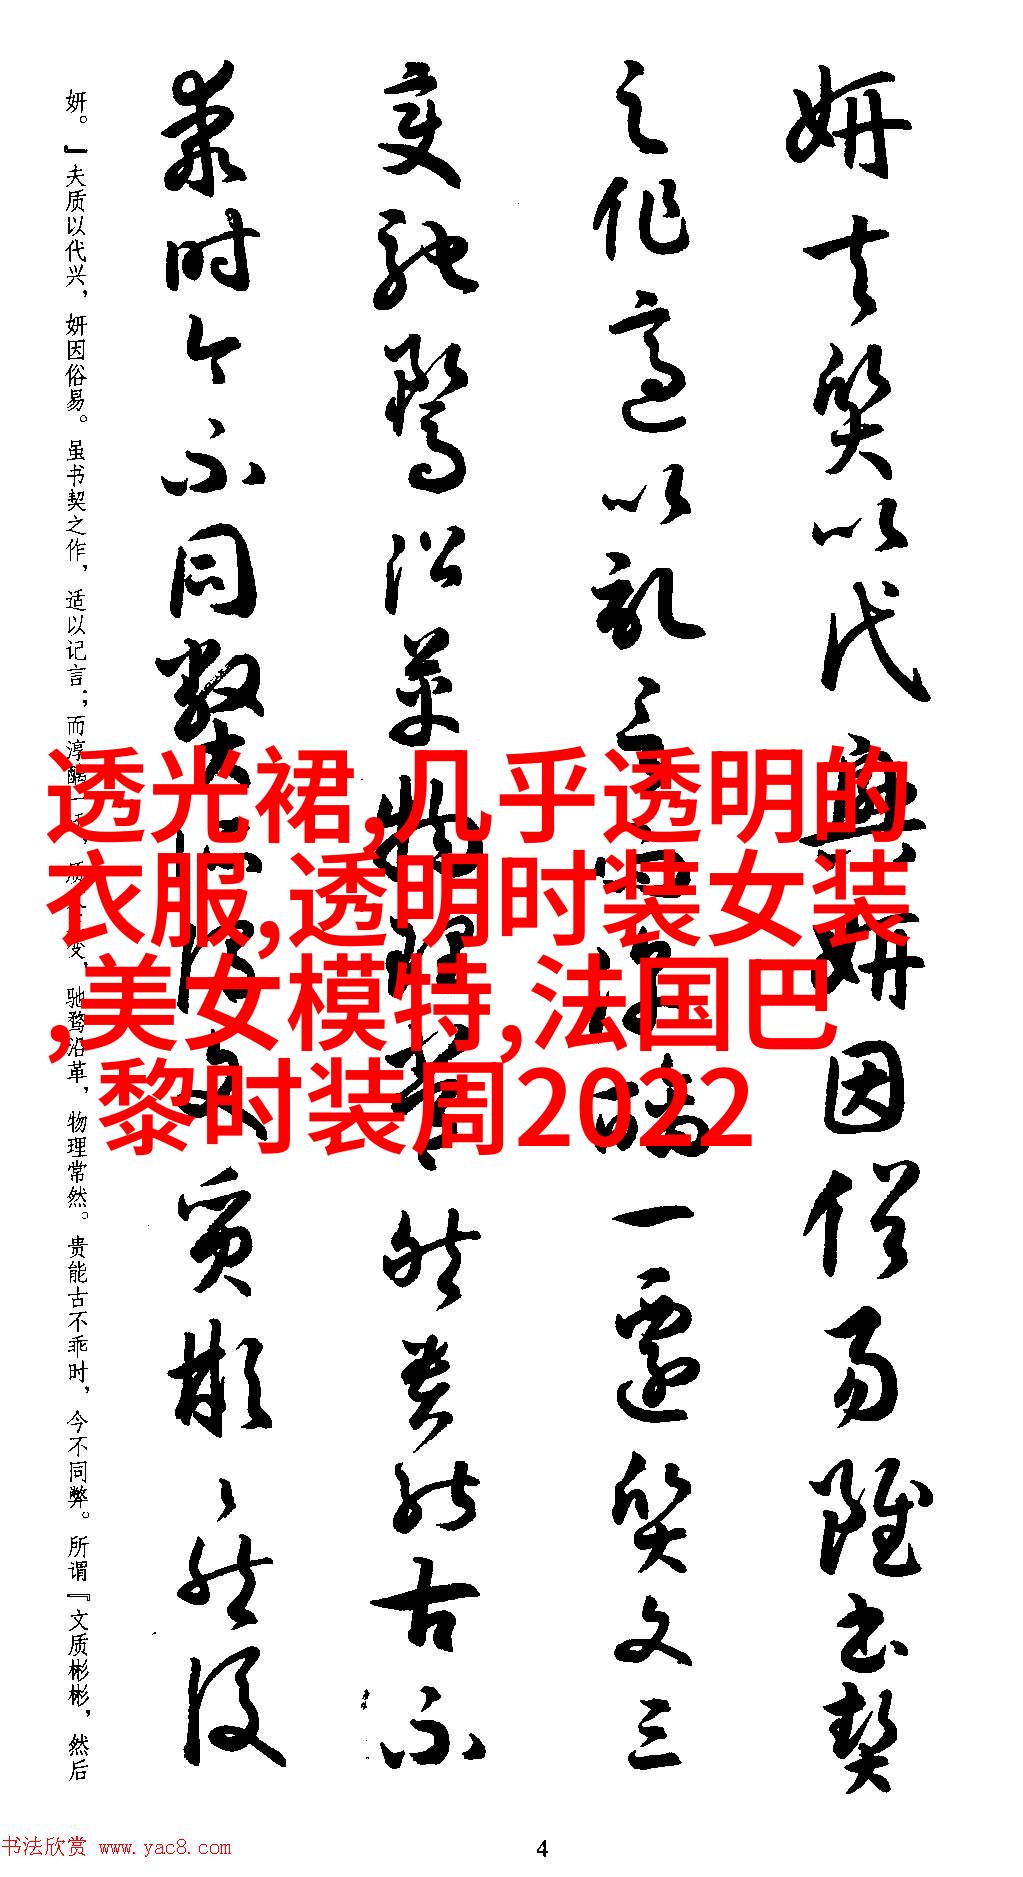 妍夫質以代興妍因俗易雖書契
之作適以記言而淳醨一遷質文三
變馳騖沿革物理常然貴能古不
乖時今不同弊所謂文質彬彬然後
妍。』夫质以代兴，妍因俗易。虽书契之作，适以记言；而淳醨一 变，驰骛沿革，物理常然。贵能古不乖时，今不同弊。所谓『文质彬彬，然后
透光裙,几乎透明的
衣服,透明时装女装
,美女模特,法国巴
黎时装周2022
书法欣赏 www.yac8.com
4